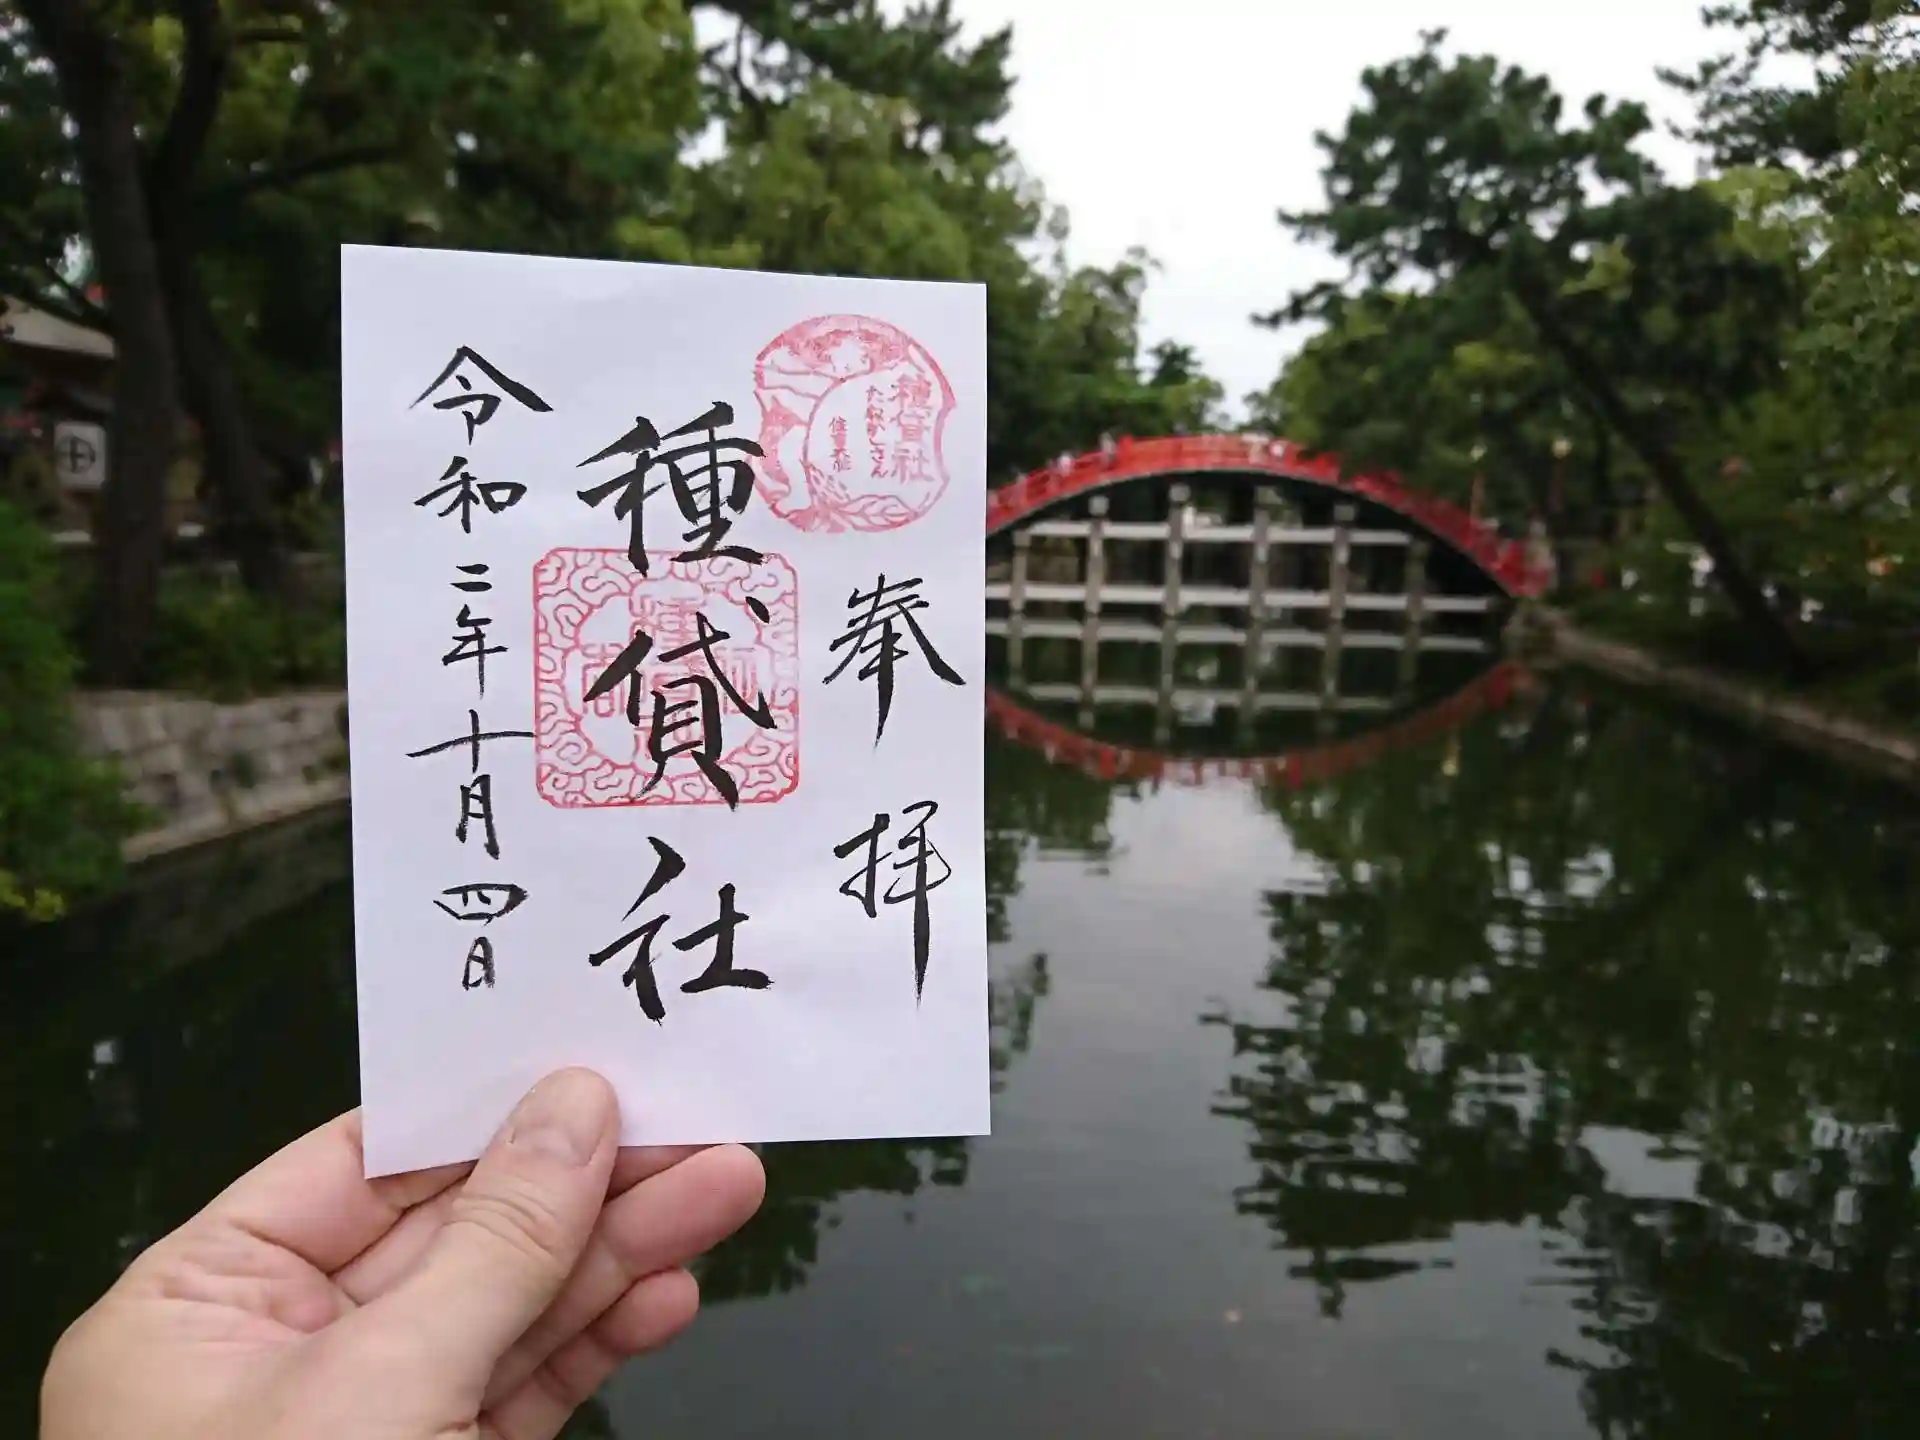 奉拝
種貸社
令和二年十月四日
種貸社
たねかしさん
住吉大社